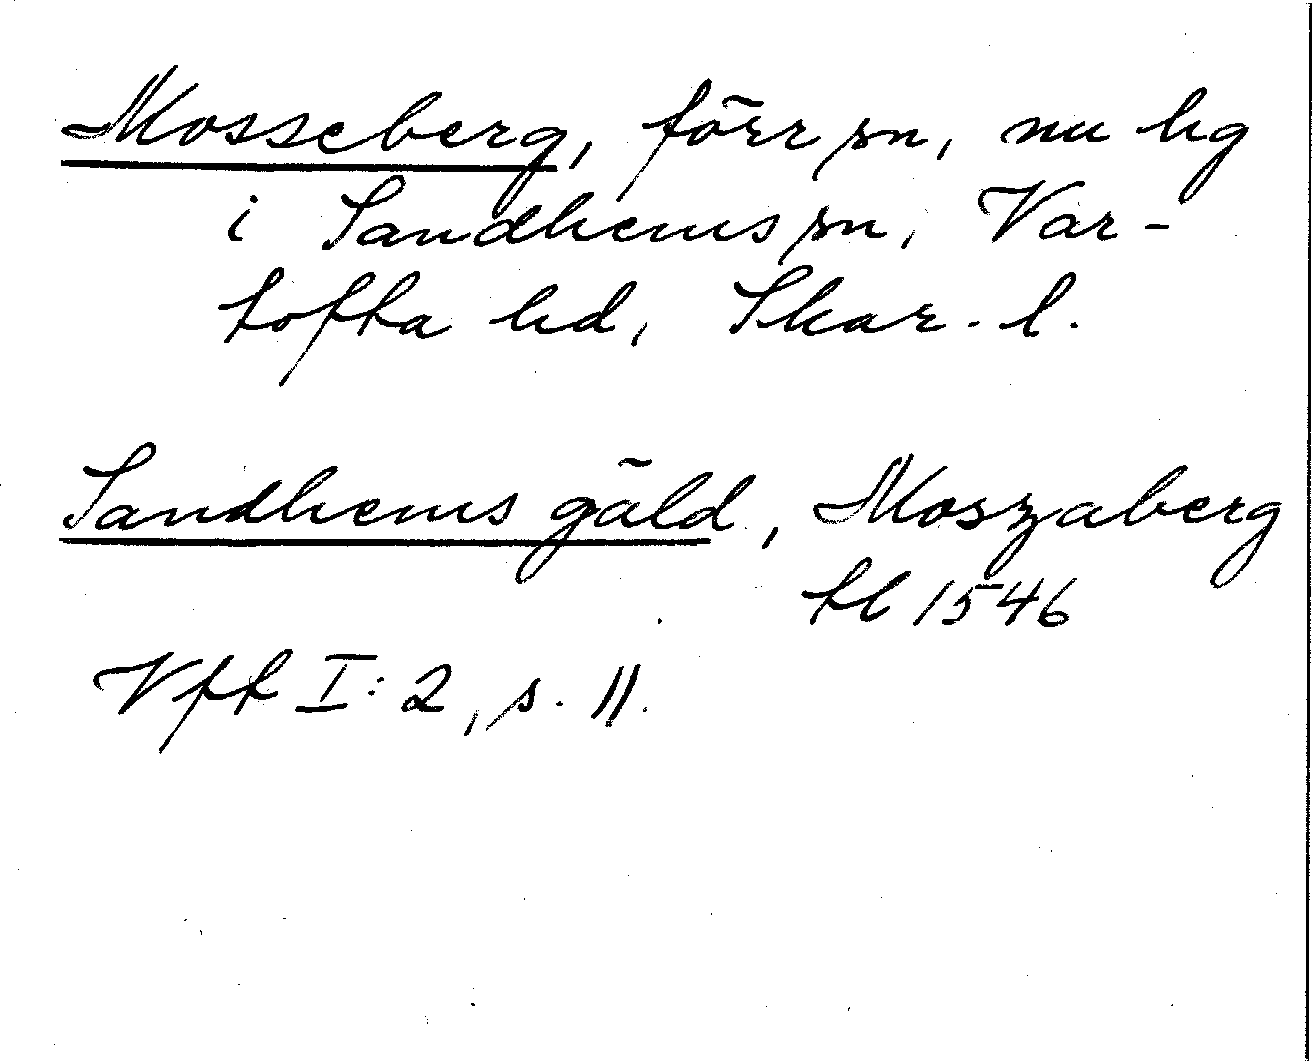 Mosseberg, förr sn, nu hg
i Sandhems sn, Var-
tofta hd, Skar. l.
Sandhems gäld, Moszaberg
tl 1546
Vft I:2, s. 11.